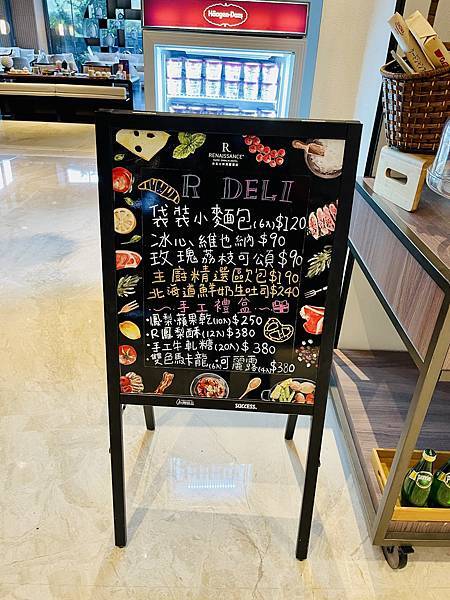 Häagen-Dazs
R
RENAISSANCE®
R DELI
袋裝小麵包(6入)$120
冰心維也納$90
玫瑰荔枝可頌$90
主廚精選歐包$190
北海道鮮奶生吐司$240
手工禮盒
·鳳梨·蘋果乾(10入)$250
·R鳳梨酥(12入)$380
·手工牛軋糖(20入)$380
·雙色馬卡龍(6入)·可麗露(4入)$380
SUCCESS.
perrier